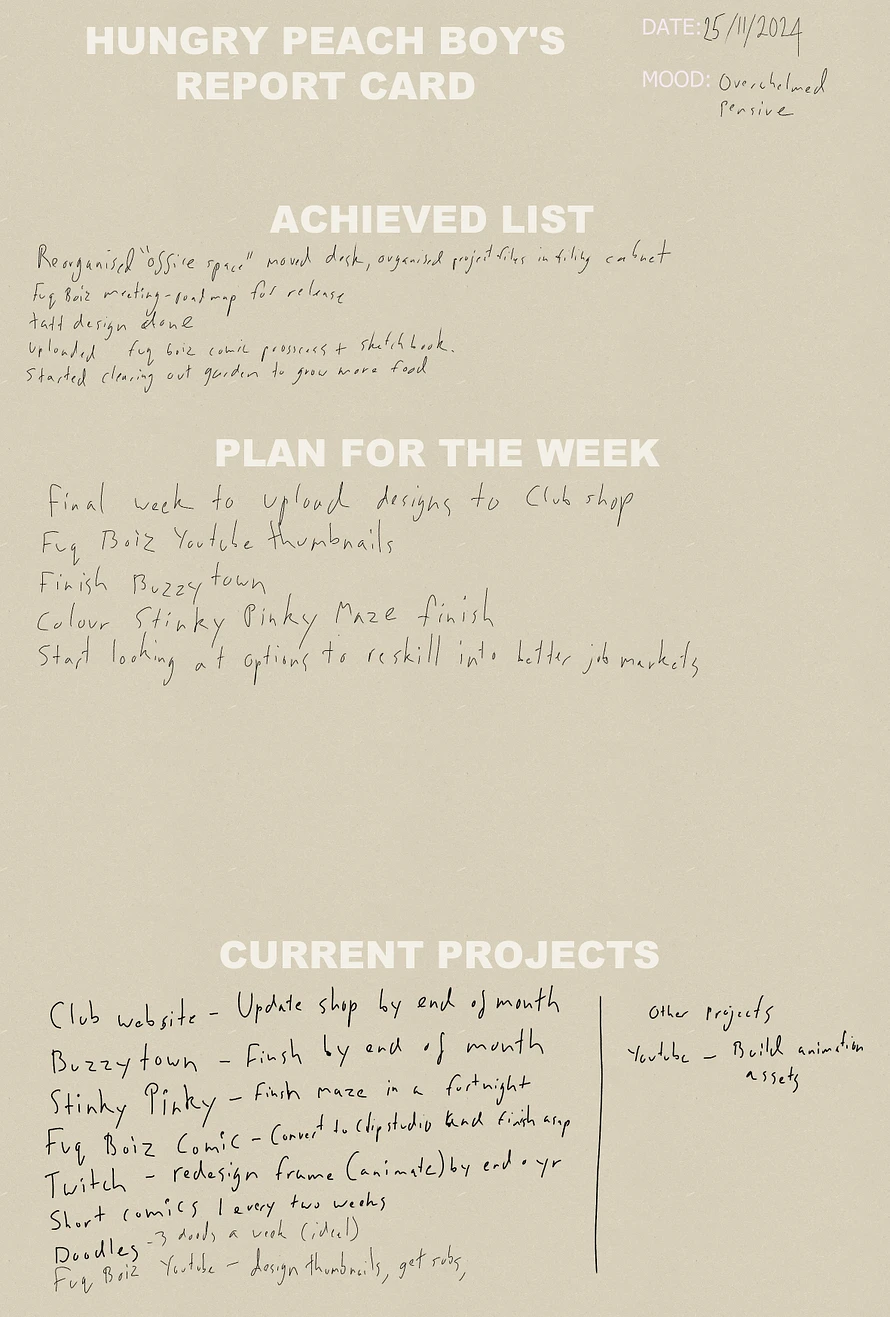 HUNGRY PEACH BOY'S
REPORT CARD
DATE: 25/11/2024
MOOD: Overwhelmed
Pensive
ACHIEVED LIST
Reorganised "office space" moved desk, organised project files in filing cabinet
Fuq Boiz meeting - roadmap for release
tatt design done
Uploaded fuq boiz comic + sketchbook.
Started clearing out garden to grow more food
PLAN FOR THE WEEK
Final week to upload designs to Club shop
Fuq Boiz Youtube thumbnails
Finish Buzzytown
Colour Stinky Pinky Maze finish
Start looking at options to reskill into better job markets
CURRENT PROJECTS
Club website - Update shop by end of month
Buzzytown - Finsh by end of month
Stinky Pinky - Finsh maze in a fortnight
Fuq Boiz Comic - Convert to Clipstudio and finish asap
Twitch - redesign frame (animate) by end o yr
Short comics 1 every two weeks
Doodles - 3 doods a week (ideal)
Fuq Boiz Youtube - design thumbnails, get subs,
Other Projects
Youtube - Build animation
assets